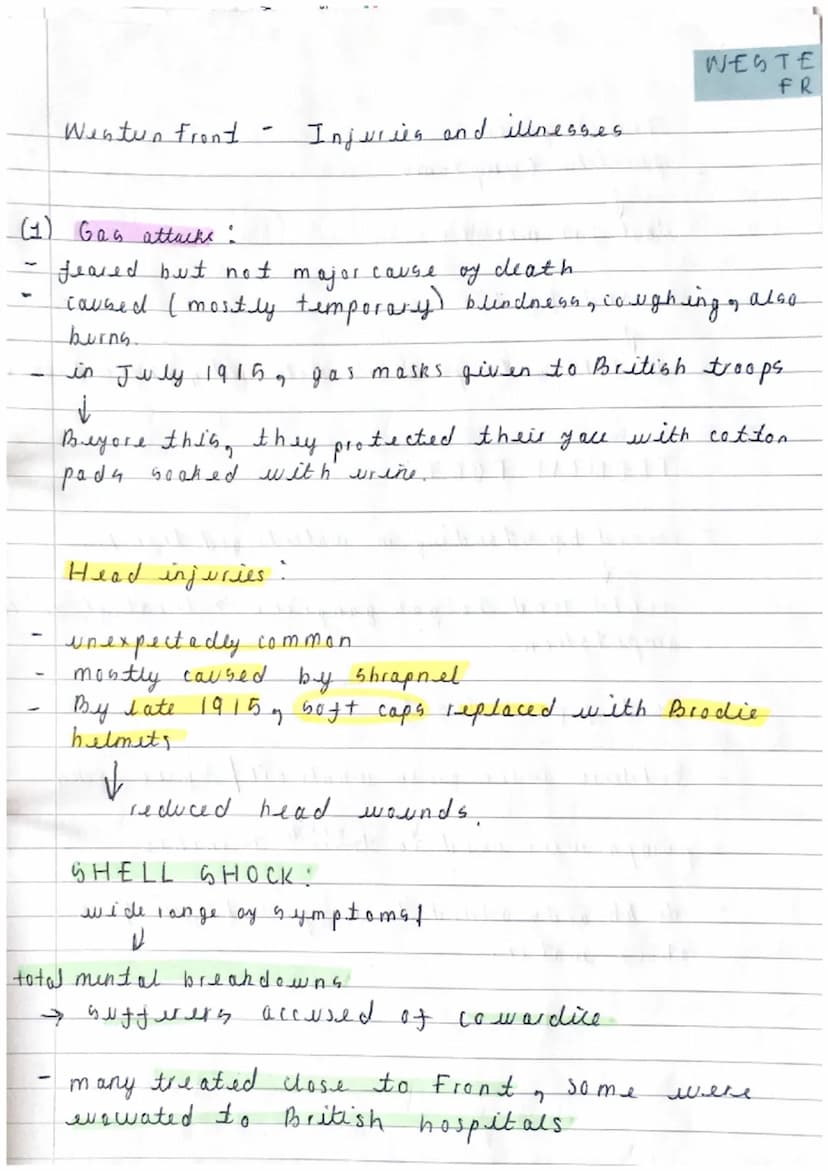 WESTE
FR
Western Front - Injuries and illnesses
(1) Gas attacks :
- feared but not major cause of death
- caused (mostly temporary) blindness, coughing, also
burns.
- in July 1915, gas masks given to British troops
↓
Before this, they protected their face with cotton
pads soaked with urine.
Head injuries :
- unexpectadly common
- mostly caused by shrapnel
- By late 1915, soft caps replaced with Brodie
helmets
↓
reduced head wounds.
SHELL SHOCK :
wide range of symptoms!
↓
total mental breakdowns
→ sufferers accused of cowardice
- many treated close to Front, some were
evacuated to British hospitals